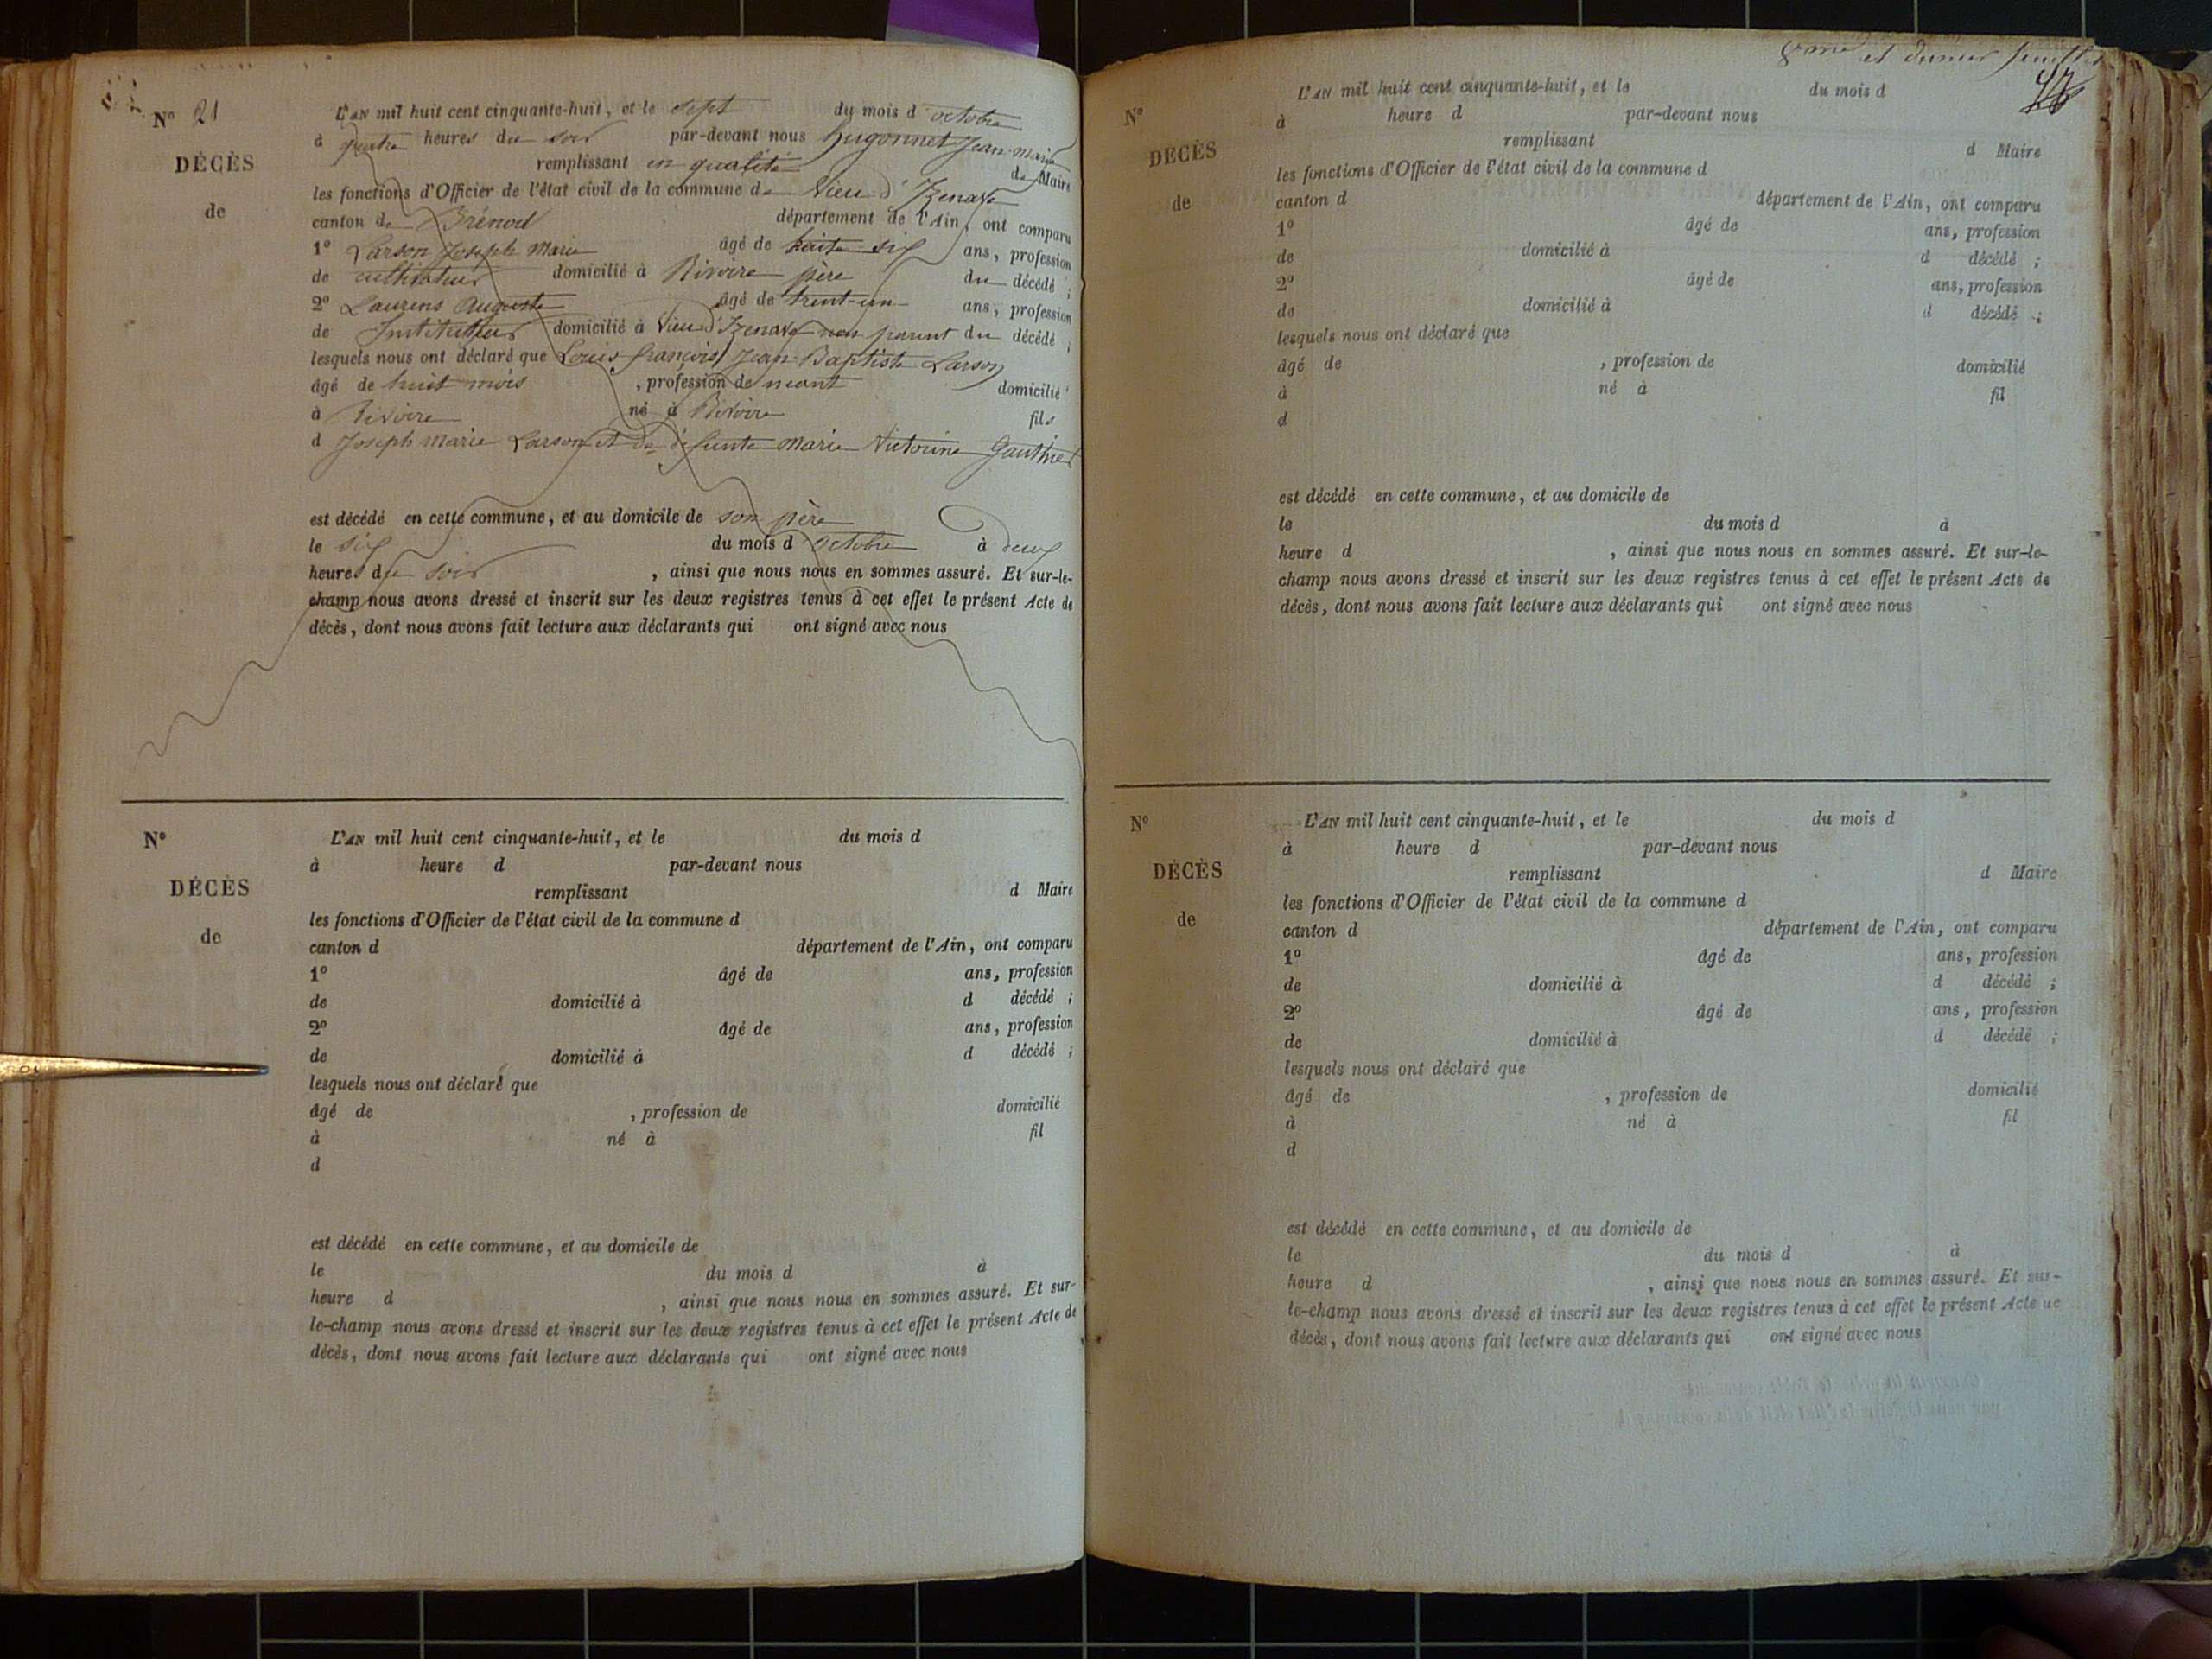 N° 21
DÉCÈS
de
L'AN mil huit cent cinquante-huit, et le sept du mois d'octobre
à quatre heures du soir par-devant nous Hugonnet Jean-marie
remplissant en qualité de Maire
les fonctions d'Officier de l'état civil de la commune de Vieu d'Izenave
canton de Brénod département de l'Ain, ont comparu
1° Larson Joseph Marie âgé de trente six ans, profession
de cultivateur domicilié à Rivoire père du décédé ;
2° Laurens Auguste âgé de trent-un ans, profession
de Instituteur domicilié à Vieu d'Izenave non parent du décédé ;
lesquels nous ont déclaré que Louis françois Jean-Baptiste Larson
âgé de huit mois , profession de néant domicilié
à Rivoire né à Rivoire fils
d Joseph Marie Larson et de défunte Marie Victorine Gauthier
est décédé en cette commune, et au domicile de son père
le six du mois d octobre à deux
heures du soir , ainsi que nous nous en sommes assuré. Et sur-le-
champ nous avons dressé et inscrit sur les deux registres tenus à cet effet le présent Acte de
décès, dont nous avons fait lecture aux déclarants qui ont signé avec nous
N°
DÉCÈS
de
L'AN mil huit cent cinquante-huit, et le du mois d
à heure d par-devant nous
remplissant d Maire
les fonctions d'Officier de l'état civil de la commune d
canton d département de l'Ain, ont comparu
1° âgé de ans, profession
de domicilié à d décédé ;
2° âgé de ans, profession
de domicilié à d décédé ;
lesquels nous ont déclaré que
âgé de , profession de domicilié
à né à fil
d
est décédé en cette commune, et au domicile de
le du mois d à
heure d , ainsi que nous nous en sommes assuré. Et sur-
le-champ nous avons dressé et inscrit sur les deux registres tenus à cet effet le présent Acte de
décès, dont nous avons fait lecture aux déclarants qui ont signé avec nous
8me et dernier feuillet
N°
DÉCÈS
de
L'AN mil huit cent cinquante-huit, et le du mois d
à heure d par-devant nous
remplissant d Maire
les fonctions d'Officier de l'état civil de la commune d
canton d département de l'Ain, ont comparu
1° âgé de ans, profession
de domicilié à d décédé ;
2° âgé de ans, profession
de domicilié à d décédé ;
lesquels nous ont déclaré que
âgé de , profession de domicilié
à né à fil
d
est décédé en cette commune, et au domicile de
le du mois d à
heure d , ainsi que nous nous en sommes assuré. Et sur-le-
champ nous avons dressé et inscrit sur les deux registres tenus à cet effet le présent Acte de
décès, dont nous avons fait lecture aux déclarants qui ont signé avec nous
N°
DÉCÈS
de
L'AN mil huit cent cinquante-huit, et le du mois d
à heure d par-devant nous
remplissant d Maire
les fonctions d'Officier de l'état civil de la commune d
canton d département de l'Ain, ont comparu
1° âgé de ans, profession
de domicilié à d décédé ;
2° âgé de ans, profession
de domicilié à d décédé ;
lesquels nous ont déclaré que
âgé de , profession de domicilié
à né à fil
d
est décédé en cette commune, et au domicile de
le du mois d à
heure d , ainsi que nous nous en sommes assuré. Et sur-
le-champ nous avons dressé et inscrit sur les deux registres tenus à cet effet le présent Acte de
décès, dont nous avons fait lecture aux déclarants qui ont signé avec nous